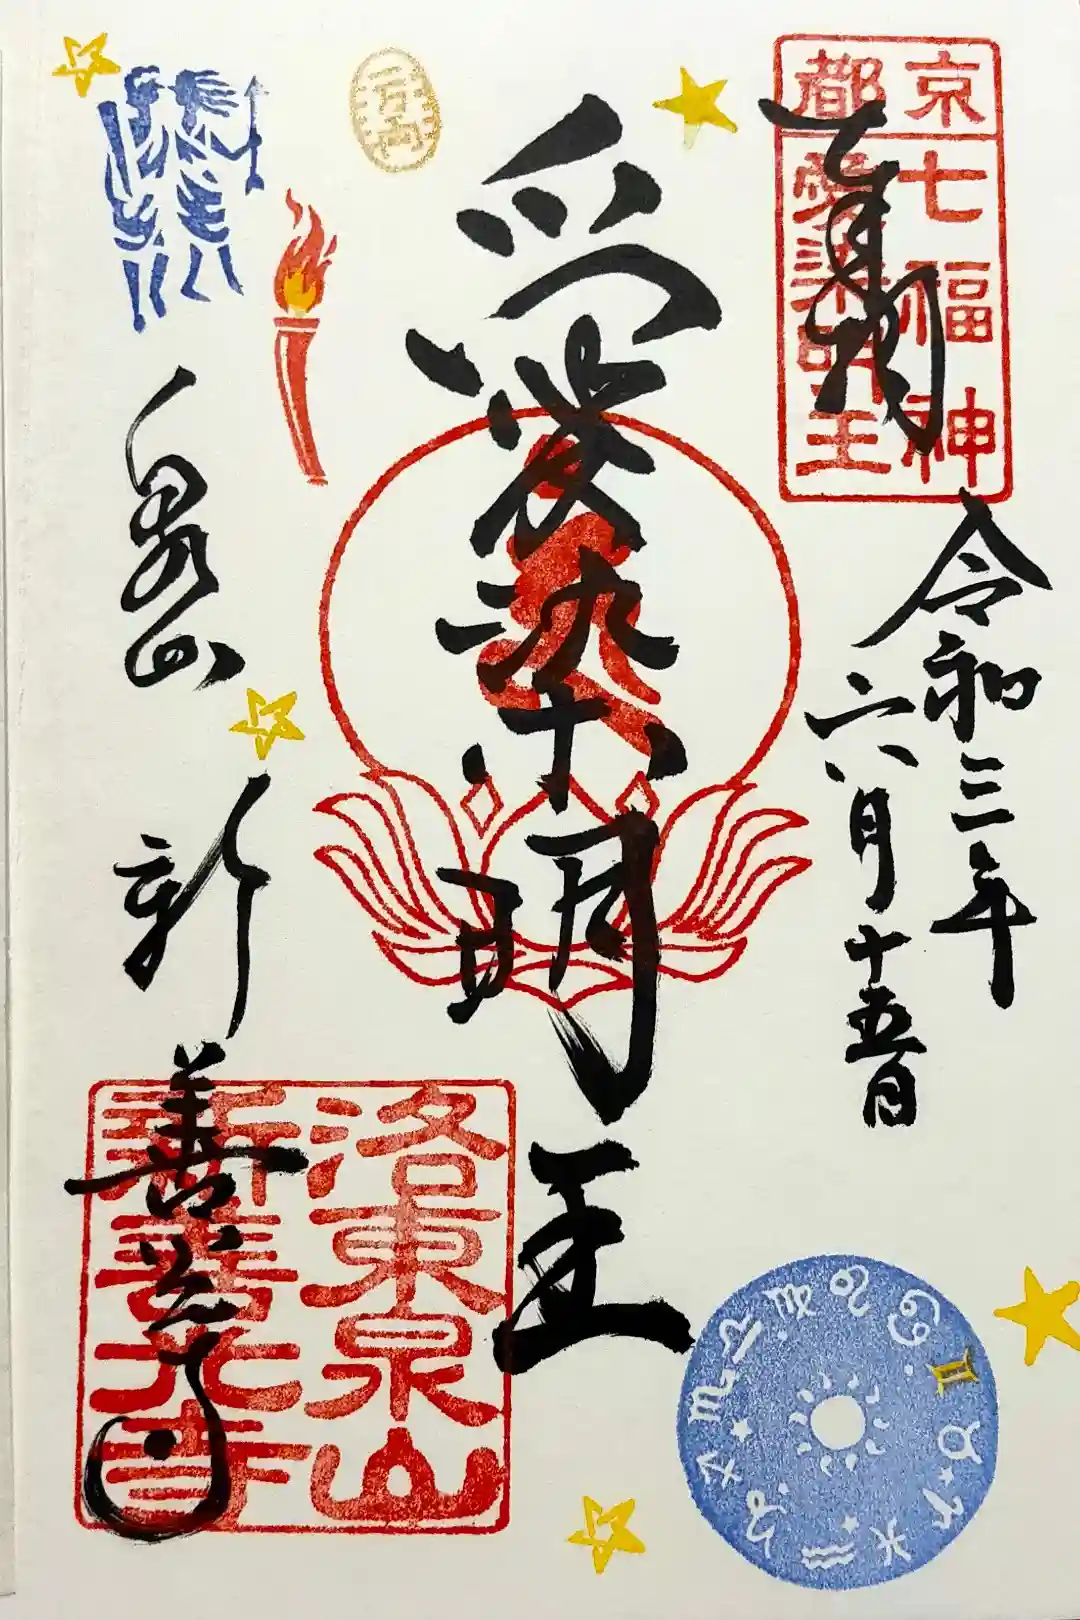 京都
七福神
愛染明王
令和三年
六月十五日
愛染明王
泉山
新善光寺
洛東泉山
新善光寺